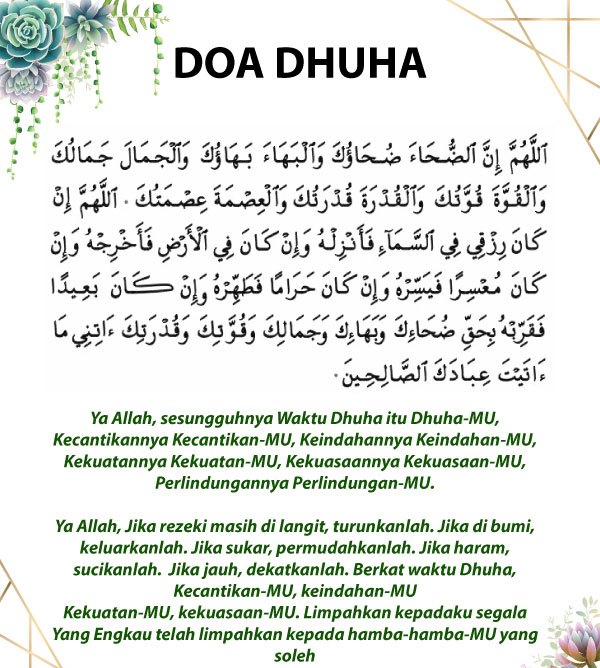 DOA DHUHA
اَللَّهُمَّ إِنَّ الضُّحَاءَ ضُحَاؤُكَ وَالْبَهَاءَ بَهَاؤُكَ وَالْجَمَالَ جَمَالُكَ
وَالْقُوَّةَ قُوَّتُكَ وَالْقُدْرَةَ قُدْرَتُكَ وَالْعِصْمَةَ عِصْمَتُكَ . اَللَّهُمَّ إِنْ
كَانَ رِزْقِي فِي السَّمَآءِ فَأَنْزِلْهُ وَإِنْ كَانَ فِي الْأَرْضِ فَأَخْرِجْهُ وَإِنْ
كَانَ مُعْسِرًا فَيَسِّرْهُ وَإِنْ كَانَ حَرَامًا فَطَهِّرْهُ وَإِنْ كَانَ بَعِيدًا
فَقَرِّبْهُ بِحَقِّ ضُحَاءِكَ وَبَهَاءِكَ وَجَمَالِكَ وَقُوَّتِكَ وَقُدْرَتِكَ ءَاتِنِي مَا
ءَاتَيْتَ عِبَادَكَ الصَّالِحِينَ.
Ya Allah, sesungguhnya Waktu Dhuha itu Dhuha-MU,
Kecantikannya Kecantikan-MU, Keindahannya Keindahan-MU,
Kekuatannya Kekuatan-MU, Kekuasaannya Kekuasaan-MU,
Perlindungannya Perlindungan-MU.
Ya Allah, Jika rezeki masih di langit, turunkanlah. Jika di bumi,
keluarkanlah. Jika sukar, permudahkanlah. Jika haram,
sucikanlah. Jika jauh, dekatkanlah. Berkat waktu Dhuha,
Kecantikan-MU, keindahan-MU
Kekuatan-MU, kekuasaan-MU. Limpahkan kepadaku segala
Yang Engkau telah limpahkan kepada hamba-hamba-MU yang
soleh